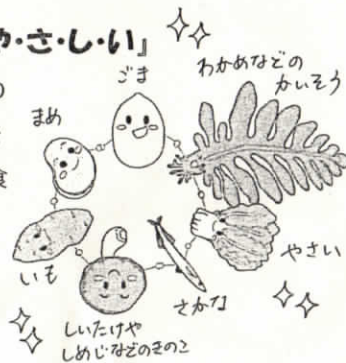 や・さ・し・い』
の
食
ごま
わかめなどの
かいそう
まめ
やさい
いも
さかな
しいたけや
しめじなどのきのこ